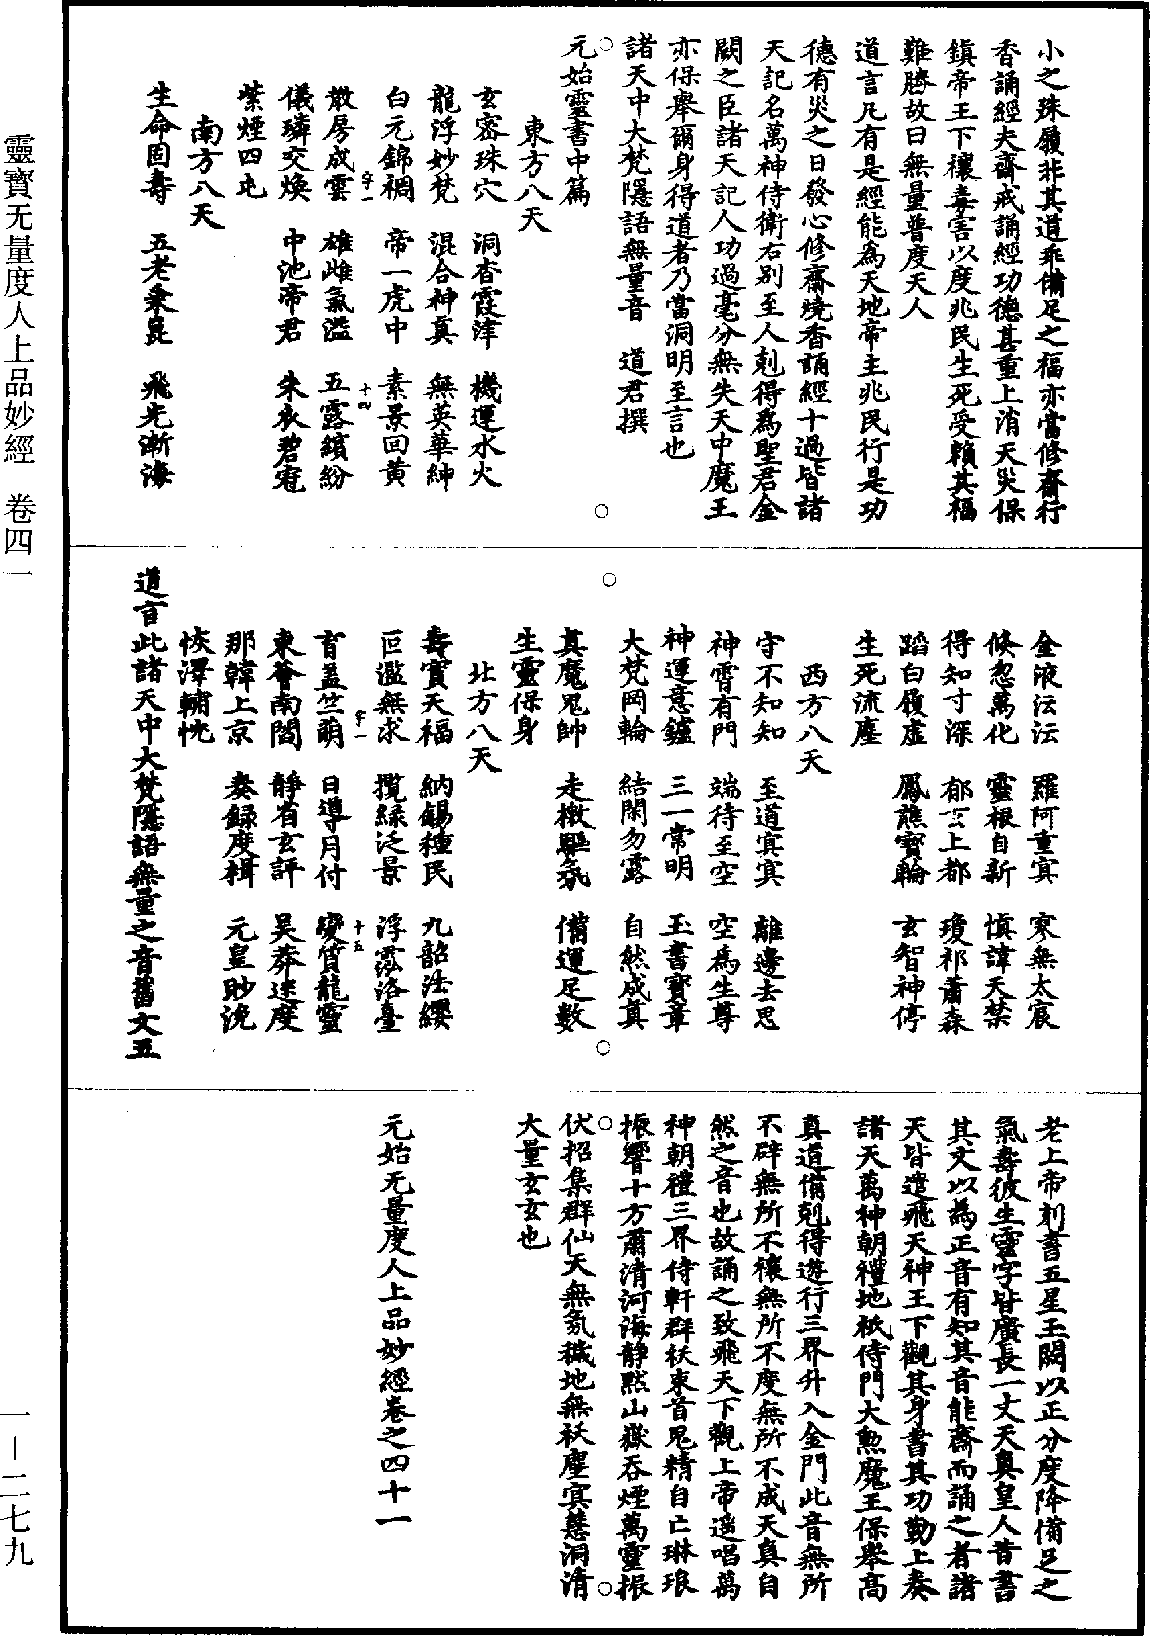 小之殊履非其道乖備足之福亦當修齋行
香誦經夫齋戒誦經功德甚重上消天災保
鎮帝王下禳毒害以度兆民生死受賴其福
難勝故曰無量普度天人
道言凡有是經能為天地帝主兆民行是功
德有災之日發心修齋燒香誦經十過皆諸
天記名萬神侍衛右別至人剋得為聖君金
闕之臣諸天記人功過毫分無失天中魔王
亦保舉爾身得道者乃當洞明至言也
諸天中大梵隱語無量音　道君撰
元始靈書中篇
東方八天
玄宻珠穴　洞杳霞津　機運水火
龍浮妙梵　混合神真　無英華紳
白元錦裯　帝一虎中　素景回黄
散房成雲　雄雌氣溢　五露繽紛
儀璘交煥　中池帝君　朱衣碧寇
紫煙四屯
南方八天
生命固壽　五老乘昆　飛光漸海
金液沄沄　羅阿重冥　寒無太宸
倏忽萬化　靈根自新　慎諱天禁
得知寸深　郁玄上都　瓊祁蕭森
蹈白履虛　鳳䕺寶輪　玄智神停
生死流塵
西方八天
守不知知　至道冥冥　離邊去思
神霄有門　端待至空　空為生尊
神運意鑪　三一常明　玉書寶章
大梵罔輪　結閑勿露　自然成真
真魔鬼帥　走檄驅氛　備運足數
生靈保身
北方八天
壽賓天福　納錫種民　九韶法纓
叵濫無求　攬緑泛景　浮霐洛臺
育蓋竺萌　日導月付　變質龍靈
東薈南閻　靜省玄評　吴莽迷度
那韓上京　奏録度楫　元皇眇浼
恢澤黼恍
道言此諸天中大梵隱語無量之音舊文五
老上帝刻書五星玉闕以正分度降備足之
氣壽彼生靈字皆廣長一丈天真皇人昔書
其文以為正音有知其音能齋而誦之者諸
天皆遣飛天神王下觀其身書其功勤上奏
諸天萬神朝禮地祇侍門大勲魔王保舉高
真道備剋得遊行三界升入金門此音無所
不辟無所不禳無所不度無所不成天真自
然之音也故誦之致飛天下觀上帝遥唱萬
神朝禮三界侍軒群袄束首鬼精自亡琳琅
振響十方肅清河海静默山嶽吞煙萬靈振
伏招集群仙天無氛穢地無袄塵冥慧洞清
大量玄玄也
元始无量度人上品妙經卷之四十一
靈寶无量度人上品妙經　卷四一
一—二七九